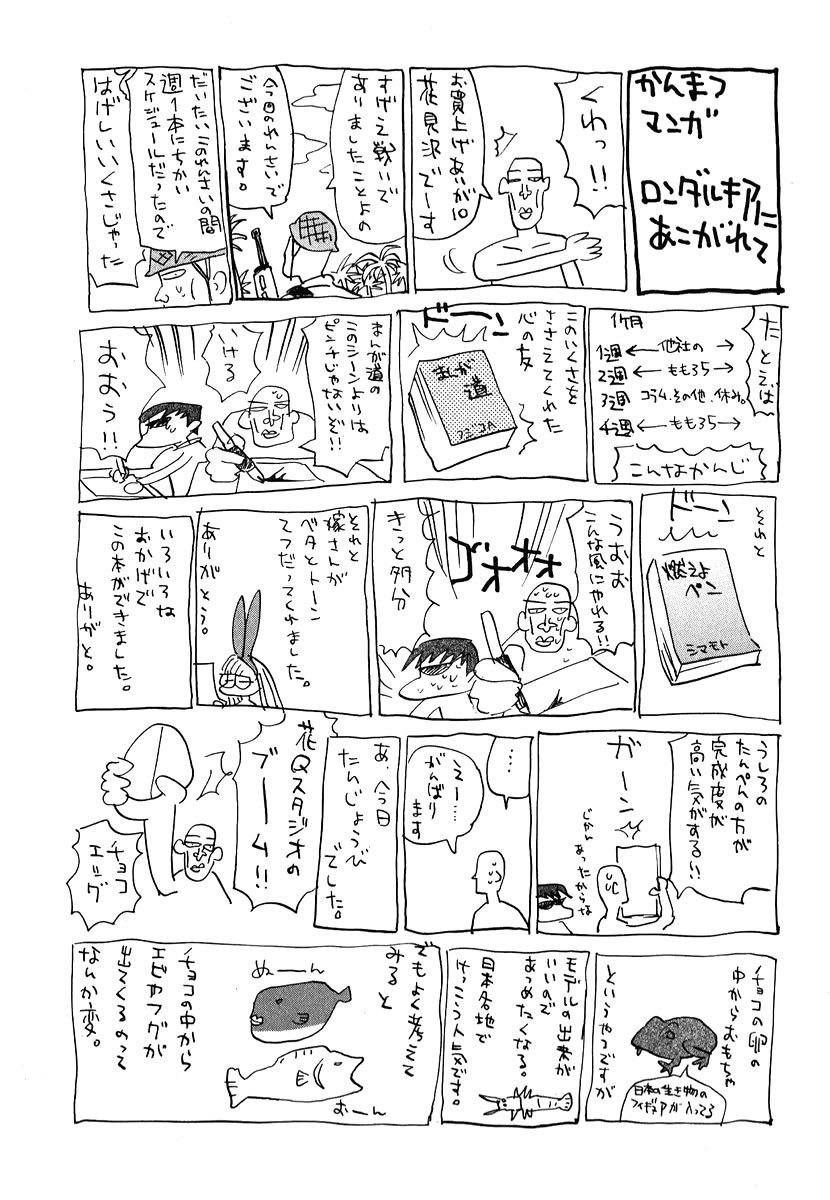 かんまつ
マンガ
ロンダルキアに
あこがれて
くわっ!!
お買上げありが10
花見沢でーす
すげえ戦いで
ありましたことよの
今回のれんさいで
ございます。
だいたいこのれんさいの間
週1本にちかい
スケジュールだったので
はげしいいくさじゃった
たとえば
1ヶ月
1週 ← 他社の →
2週 ← もも35 →
3週 コラム、その他、休み。
4週 ← もも35 →
こんなかんじ
このいくさを
ささえてくれた
心の友
ドーン
まんが
道
フジコA
まんが道の
このシーンよりは
ピンチじゃないぞ!!
いける
おおぅ!!
それと
ドーン
燃えよ
ペン
シマモト
うむむ
こんな風にやれる!!
オオオ
きっと多分
それと
嫁さんが
ベタとトーン
てつだってくれました。
ありがとう。
いろいろな
おかげで
この本ができました。
ありがと。
うしろの
たんぺんの方が
完成度が
高い気がするい!
ガーン
じかん
あったからな
…
えー……
がんばり
ます
あ、今日
たんじょうび
でした。
花Qスタジオの
ブーム!!
チョコ
エッグ
チョコの卵の
中からおもちゃ
というやつですが
日本の生き物の
フィギュアが入ってる
モデルの出来が
いいので
あつめたくなる。
日本各地で
けっこう人気です。
でもよく考えて
みると
ぬーーん
むーん
チョコの中から
エビやフグが
出てくるのって
なんか変。